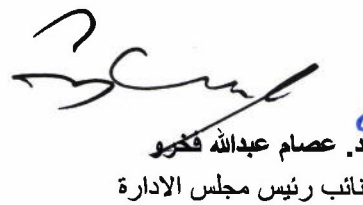 د. عصام عبدالله فخرو
نائب رئيس مجلس الادارة